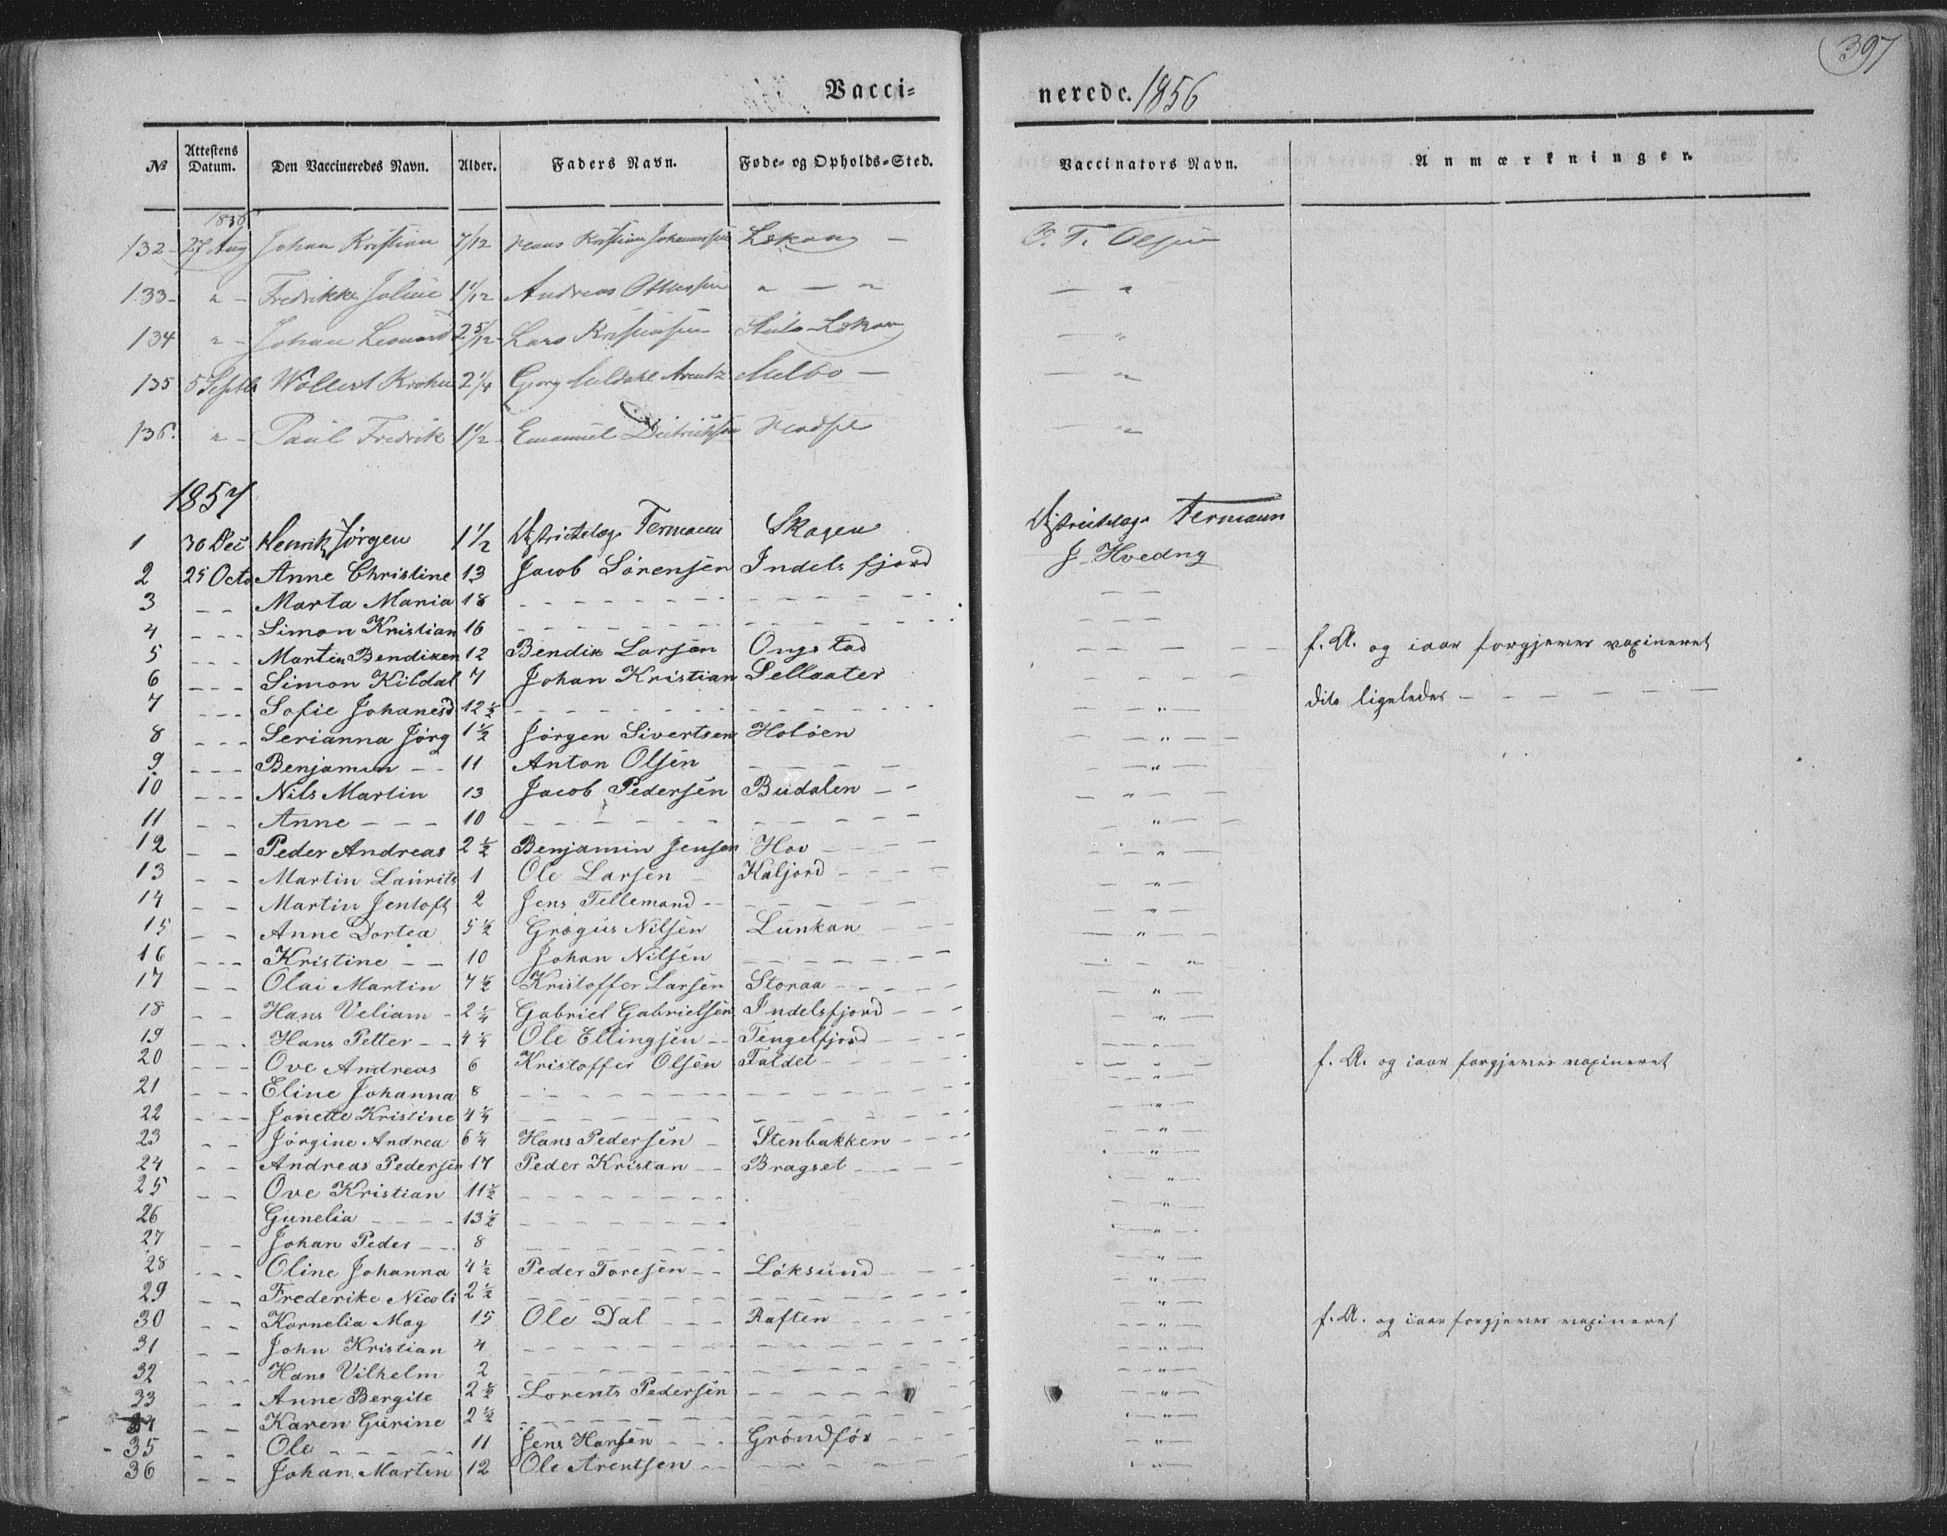 397
Vacci- nerede. 1856
№ Attestens Datum. Den Vaccineredes Navn. Alder. Faders Navn. Føde- og Opholds-Sted. Vaccinators Navn. Anmærkninger.
1856
132 27 Aug Johan Kristian 7/12 Hans Kristian Johannessen Lekang — Olsen
133 " - Fredrikke Joline 1 1/12 Andreas Ottessen " — " — "
134 " - Johan Leonard 2 5/12 Lars Kristensen — "
135 5 Septb Wollert Krohn 2 1/4 Georg Meldahl Arentz Melbo — — "
136. " - Paul Fredrik 1 1/2 Emanuel — "
1857
1 30 Dec Henrik Jørgen 1 1/2 Distriktslæge Fermann Skagen Distriktslæge Fermann
2 25 Octo Anne Christine 13 Jacob Sørensen Indelsfjord J. Hveding
3 - - Marta Maria 18 - - - - - - - - - -
4 - - - Simon Kristian 16 - - - - - - - - - - -
5 - - - Martin Bendixen 12 Bendix Larsen Ongstad - - - - f. A. og iaar forgjeves vaxineret
6 - - - Simon Kildal 7 Johan Kristian Sellaater - - - -
7 - - - Sofie Johanesd 12 1/2 - - - - - - - - — " — dito ligeledes - - - - - -
8 - - - Serianna Jørg 1 1/2 Jørgen Sivertsen Holøen — " —
9 - - - Benjamin - - 11 Anton Olsen - - - - — " —
10 - - - Nils Martin 13 Jacob Pedersen Budalen - - — " —
11 - - Anne - - - 10 - - - - - - - - — " —
12 - - Peder Andreas 2 1/2 Benjamin Jensen Hov - - - — " —
13 - - Martin Laurits 1 Ole Larsen Kaljord - - - - — " —
14 - - Martin Jentoft 2 Jens Tellemand - - - - - - — " —
15 - - Anne Dortea 5 1/2 Grogus Nilsen Lunkan - - - — " —
16 - - - Kristine - - 10 Johan Nilsen - - - - - - " -
17 - - Olai Martin 7 1/2 Kristoffer Larsen Storaa - - - - — " —
18 - - Hans Veliam - 2 1/4 Gabriel Gabrielsen Indelsfjord - - - — " —
19 - - - Hans Petter - - 4 1/4 Ole Ellingsen - - Tengelfjord - - - — " —
20 - - Ove Andreas 6 Kristoffer Olsen Faldet - - - - — " — f. A. og iaar forgjeves vaxineret
21 - - - Eline Johanna 8 - - - - - - - - — " —
22 - - - Jonette Kristine 4 1/4 - - - - - - - - — " —
23 - - Jørgine Andrea 6 1/4 Hans Pedersen - Stenbakken - - - — " —
24 - - Andreas Pedersen 17 Peder Kristan - - Bragset - - - - — " —
25 - - Ove Kristian 11 1/2 - - - - - - — " —
26 Gunelia - - - - 13 1/2 - - - - - - — " —
27 - - Johan Peder - - 8 - - - - - - — " —
28 - - - Oline Johanna 4 1/2 Peder Toresen - - Løksund - - - — " —
29 - - Frederike Nicoli 2 1/2 - - - - - - - - — " —
30 - - Kornelia Mag 15 Ole Dal - - - Raften - - - - — " — f. A. og iaar forgjeves vaxineret
31 - - John Kristian 4 - - - - - - - - — " —
32 - - - Hans Vilhelm 2 - - - - - - - - — " —
33 - - Anne Bergite 2 1/2 Lorents Pedersen - - - - - — " —
34 - - Karen Gurine 2 1/2 - - - - - - - - — " —
35 - - Ole - - - - - 11 Jens Hansen - - - Grøndfør - - - — " —
36 - - Johan Martin 12 Ole Arentsen - - - - - - - — " —